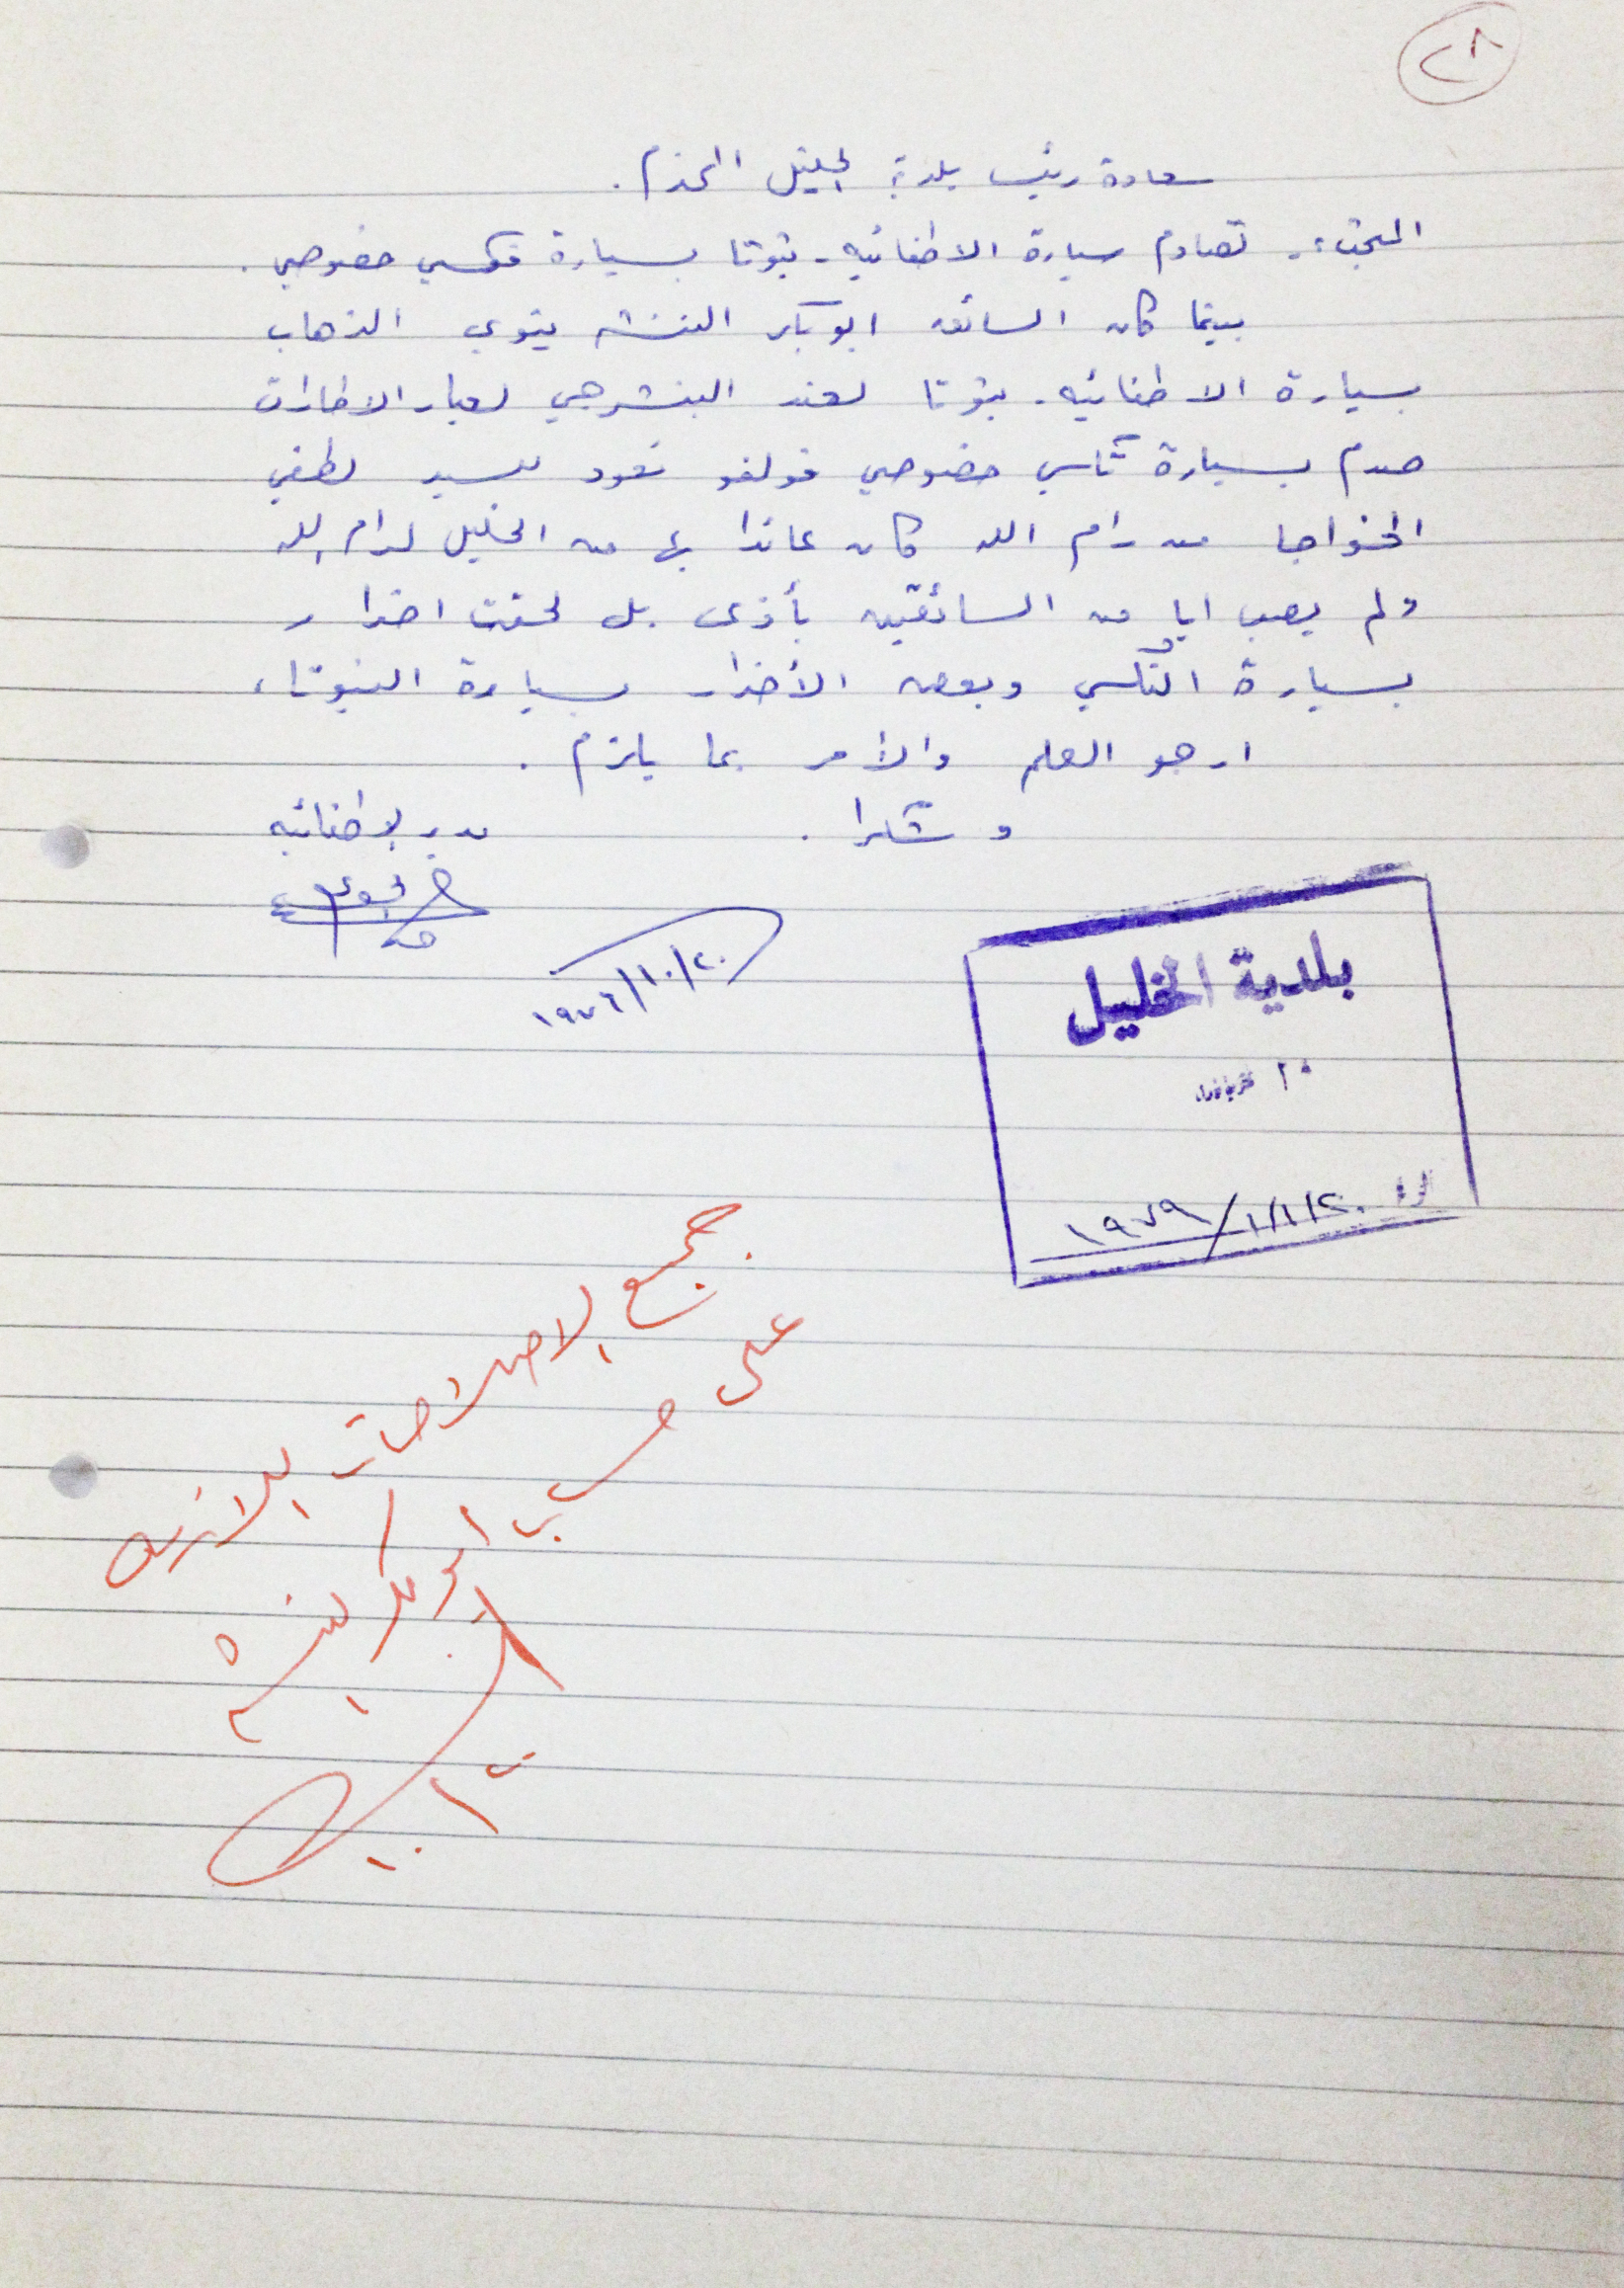 ٢٨
سعادة رئيس بلدية الخليل المحترم .
المبحث :- تصادم سيارة الاطفائيه - تيوتا بسيارة تكسي خصوصي .
بينما كان السائق ابو بكر النتشه ينوي الذهاب
بسيارة الاطفائيه - تيوتا لعند البنشرجي لعيار الاطارات
صدم بسيارة تكسي خصوصي فولفو تعود للسيد لطفي
الخواجا من رام الله كان عائدا بها من الخليل لرام الله
ولم يصب ايا من السائقين بأذى بل لحقت اضرار
بسيارة التكسي وبعض الأضرار بسيارة التيوتا ،
ارجو العلم والأمر بما يلزم .
وشكرا .
مدير الاطفائيه
١٩٧٦/١٠/٢٠
بلدية الخليل
٢٠
١٩٧٩/١/١/٢٠
جميع الاصلاحات اللازمه
على حساب ابو بكر النتشه